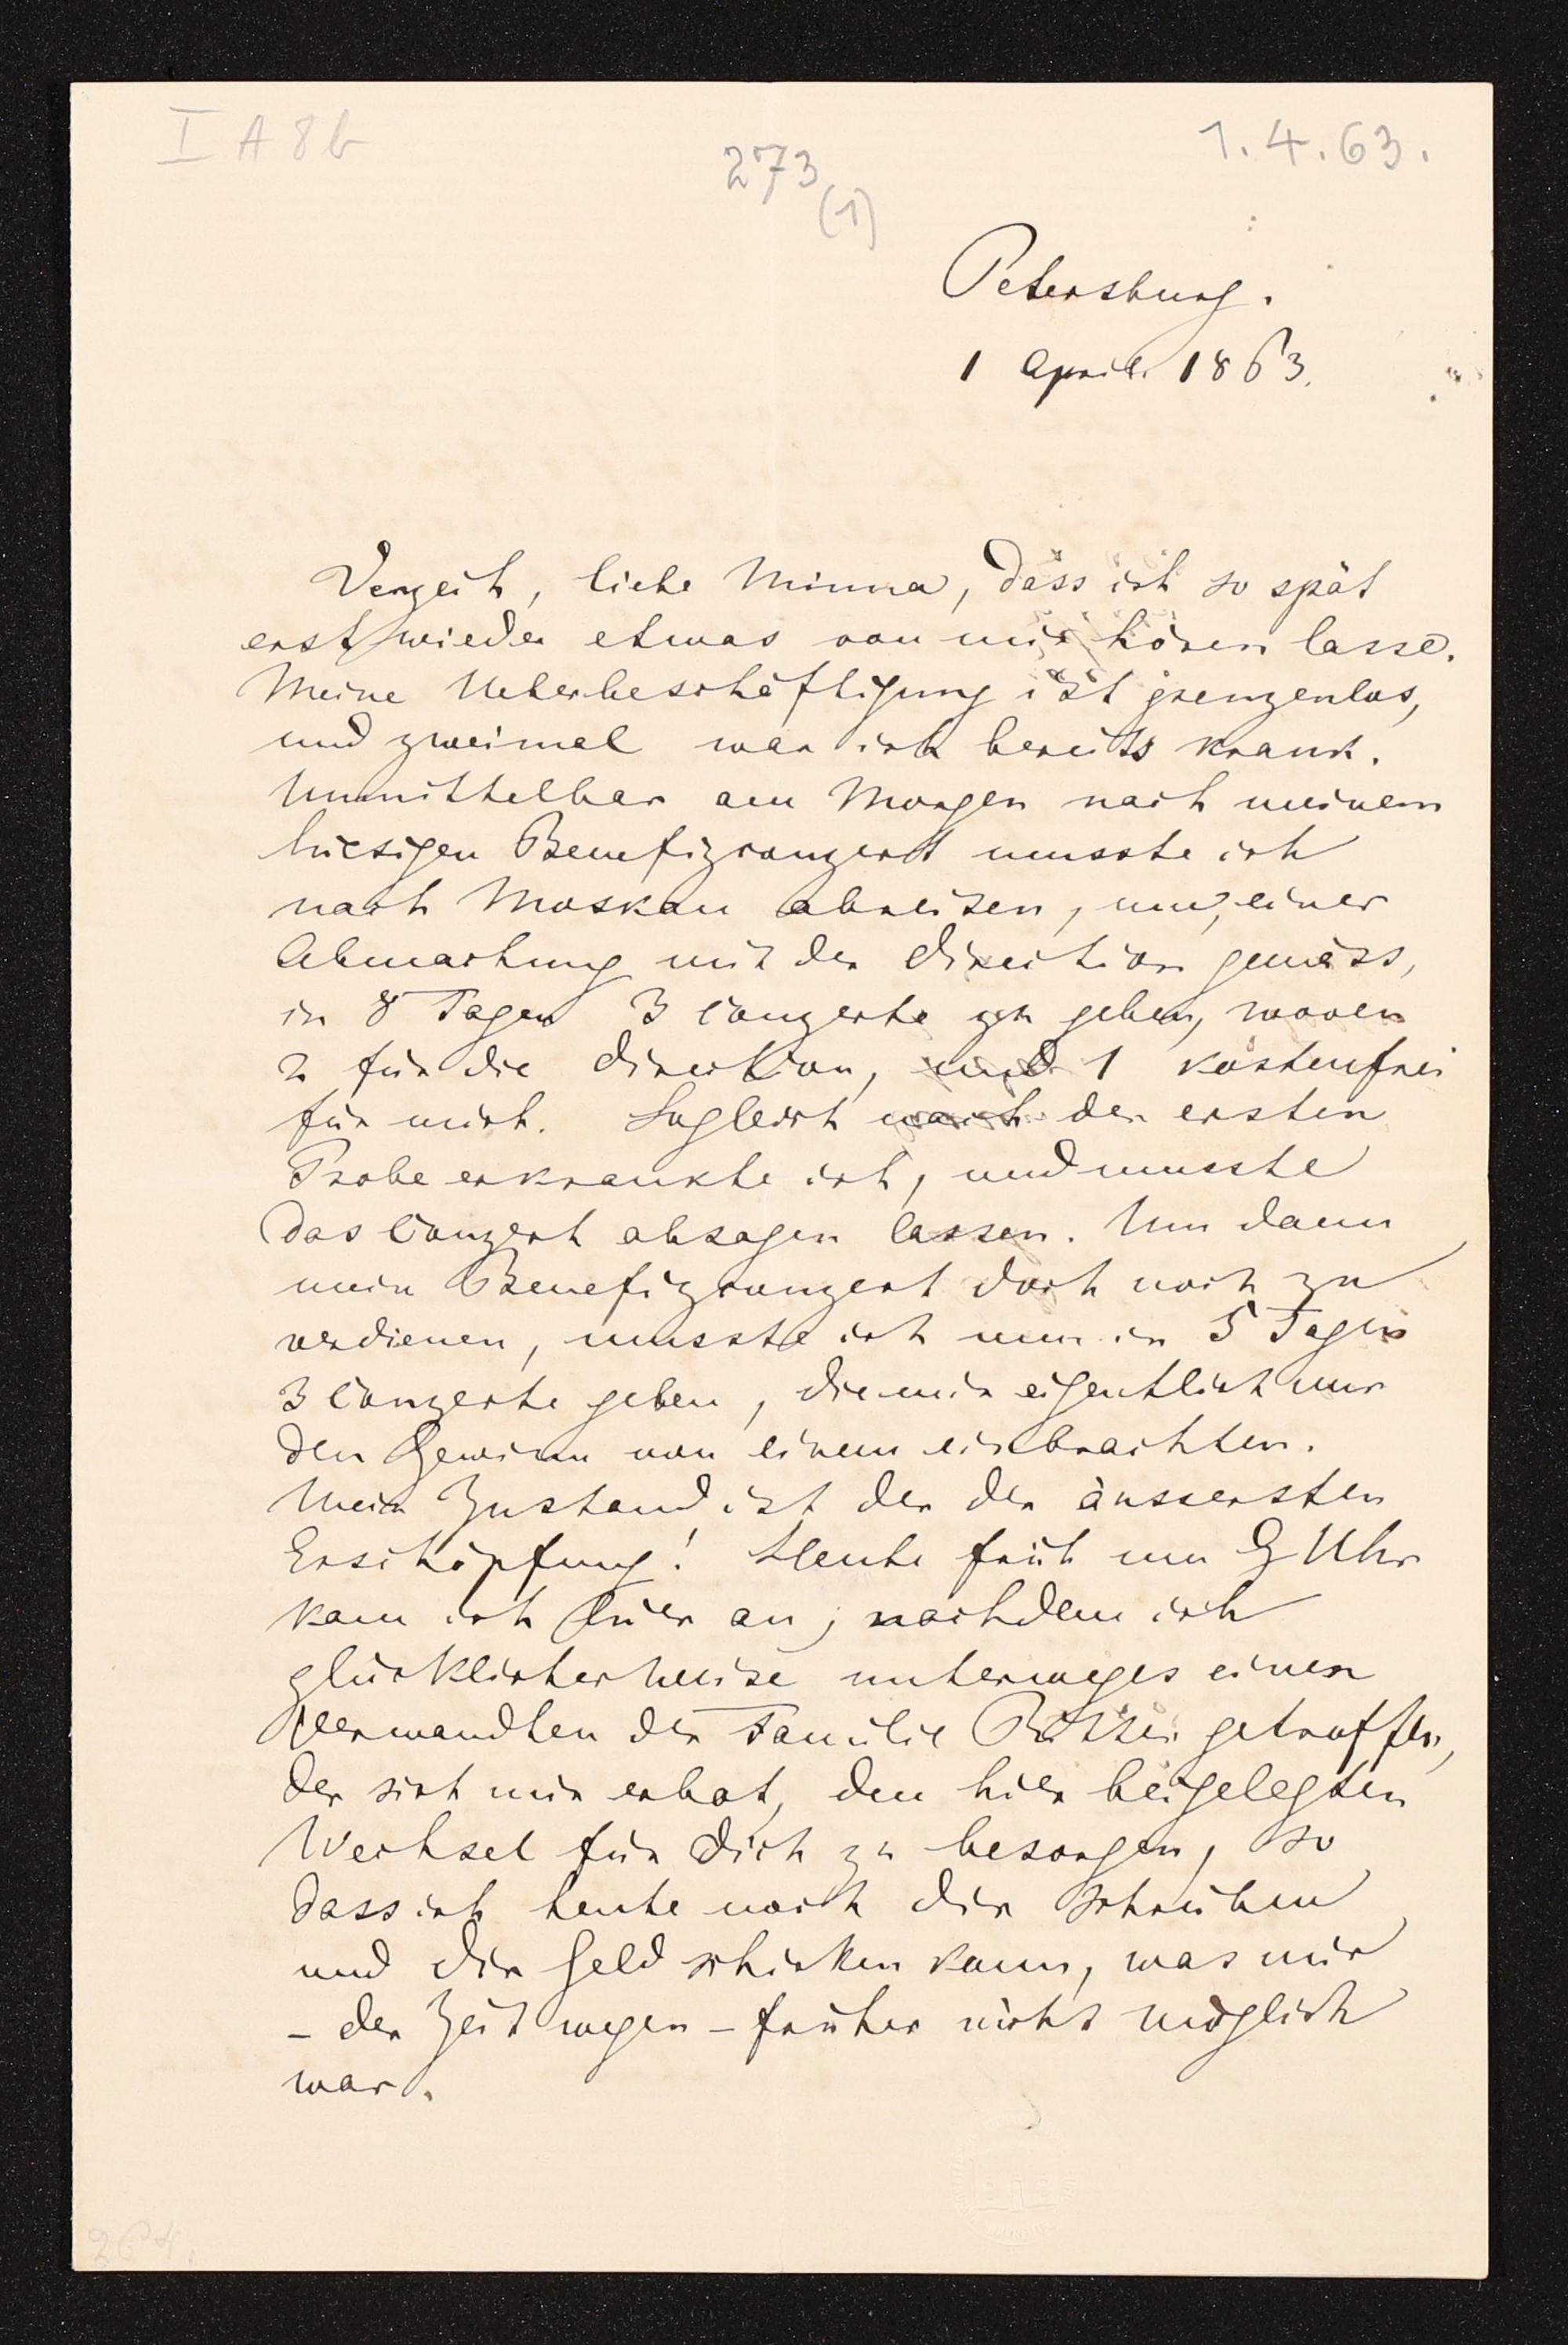 I A 8 b
273
(1)
1.4.63.
Petersburg.
1 April 1863.
Verzeih, liebe Minna, dass ich so spät
erst wieder etwas von mir hören lasse.
Meine Ueberbeschäftigung ist grenzenlos,
und zweimal war ich bereits krank.
Unmittelbar am Morgen nach meinem
hiesigen Benefizconzert musste ich
nach Moskau abreisen, um, einer
Abmachung mit der Direction gemäss,
in 8 Tagen 3 Conzerte zu geben, wovon
2 für die Direktion, und 1 kostenfrei
für mich. Sogleich nach der ersten
Probe erkrankte ich, und musste
das Conzert absagen lassen. Um dann
mein Benefizconzert doch noch zu
verdienen, musste ich nun in 5 Tagen
3 Conzerte geben, die mir eigentlich nur
den Gewinn von einem einbrachten.
Mein Zustand ist der der äussersten
Erschöpfung! Heute früh um 9 Uhr
kam ich hier an, nachdem ich
glücklicherweise unterweges einen
Verwandten der Familie Ritter getroffen,
der sich mir erbot, den hier beigelegten
Wechsel für dich zu besorgen, so
dass ich heute noch dir schreiben
und dir Geld schicken kann, was mir
– der Zeit wegen – früher nicht möglich
war.